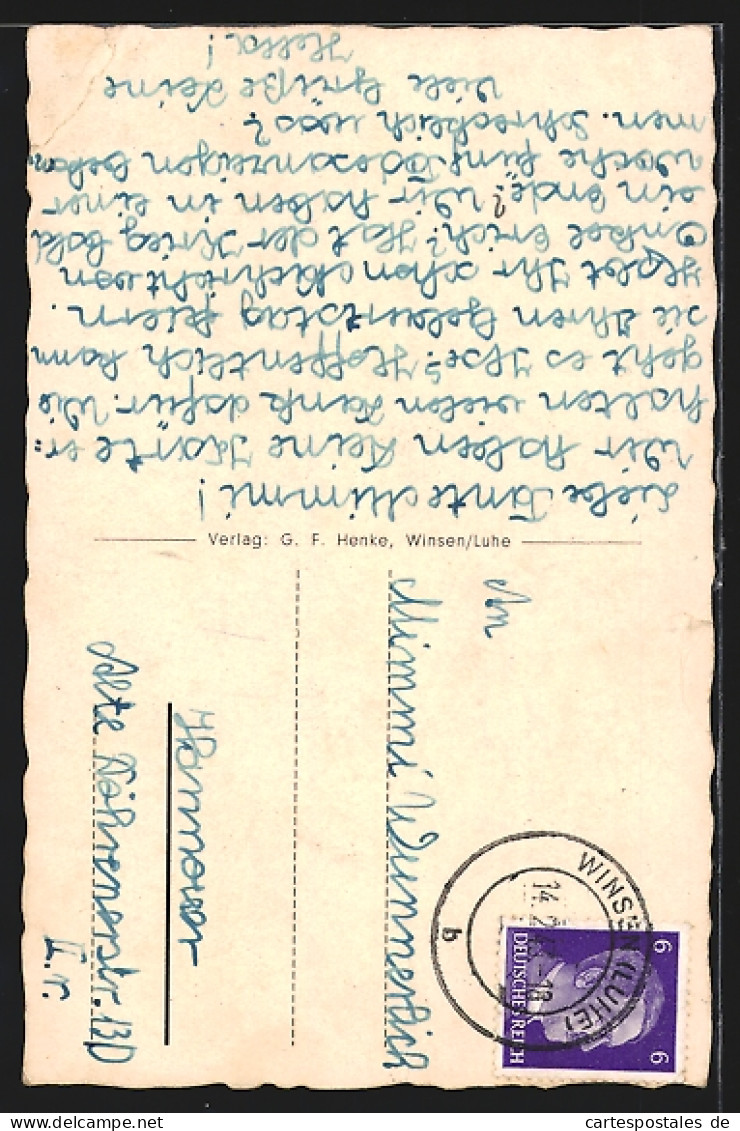 Liebe Tante Mimmi!
Wir haben Deine Karte er=
halten vielen Dank dafür. Wie
geht es Ilse? Hoffentlich kann
sie Ihren Geburtstag feiern.
Habt Ihr schon Nachricht von
Onkel Erich? Hat der Krieg bald
ein Ende? Wir haben in einer
Woche fünf Todesanzeigen bekom
men. Schrecklich was?
Viele Grüße Deine
Hella!
Verlag: G. F. Henke, Winsen/Luhe
An
Mimmi
Hannover
Alte Döhrenerstr. 13
II. r.
WINSEN (LUHE)
14. 2.
-18
b
6 6
DEUTSCHES REICH
cartespostales de